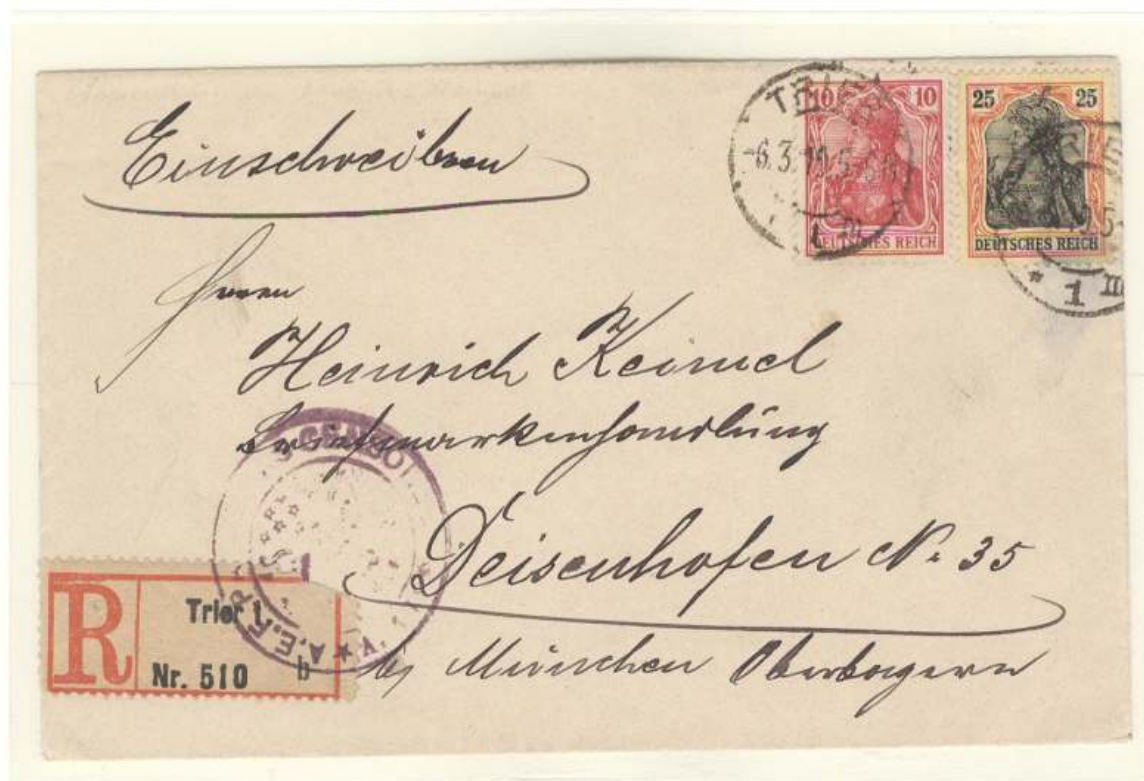 Einschreiben
TRIER
-6.3.19.5-6N
10 10
DEUTSCHES REICH
25 25
DEUTSCHES REICH
* 1 III
Herrn
Heinrich Keimel
Briefmarkenhandlung
Deisenhofen N. 35
bei München Oberbayern
A.E.F.
R
Trier 1
Nr. 510 b